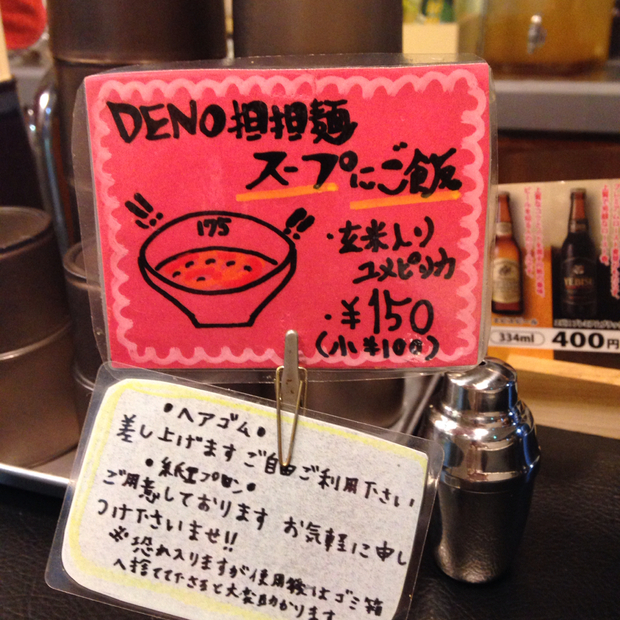 DENO担担麺
スープにご飯
!!
175
!!
・玄米入り
ユメピリカ
・¥150
(小¥100)
334ml
400円
•ヘアゴム•
差し上げます ご自由ご利用下さい
•紙エプロン•
ご用意しております お気軽に申し
つけ下さいませ!!
※恐れ入りますが使用後はゴミ箱
へ捨てて下さると大変助かります